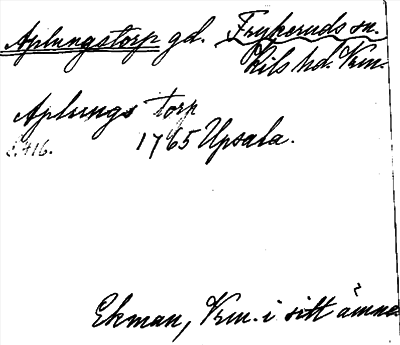 Aplungstorp gd. Frykeruds sn.
Kils hd. Vrm.
Aplungs torp
s. 416. 1765 Upsala.
Ekman, Vrm. i sitt ämne